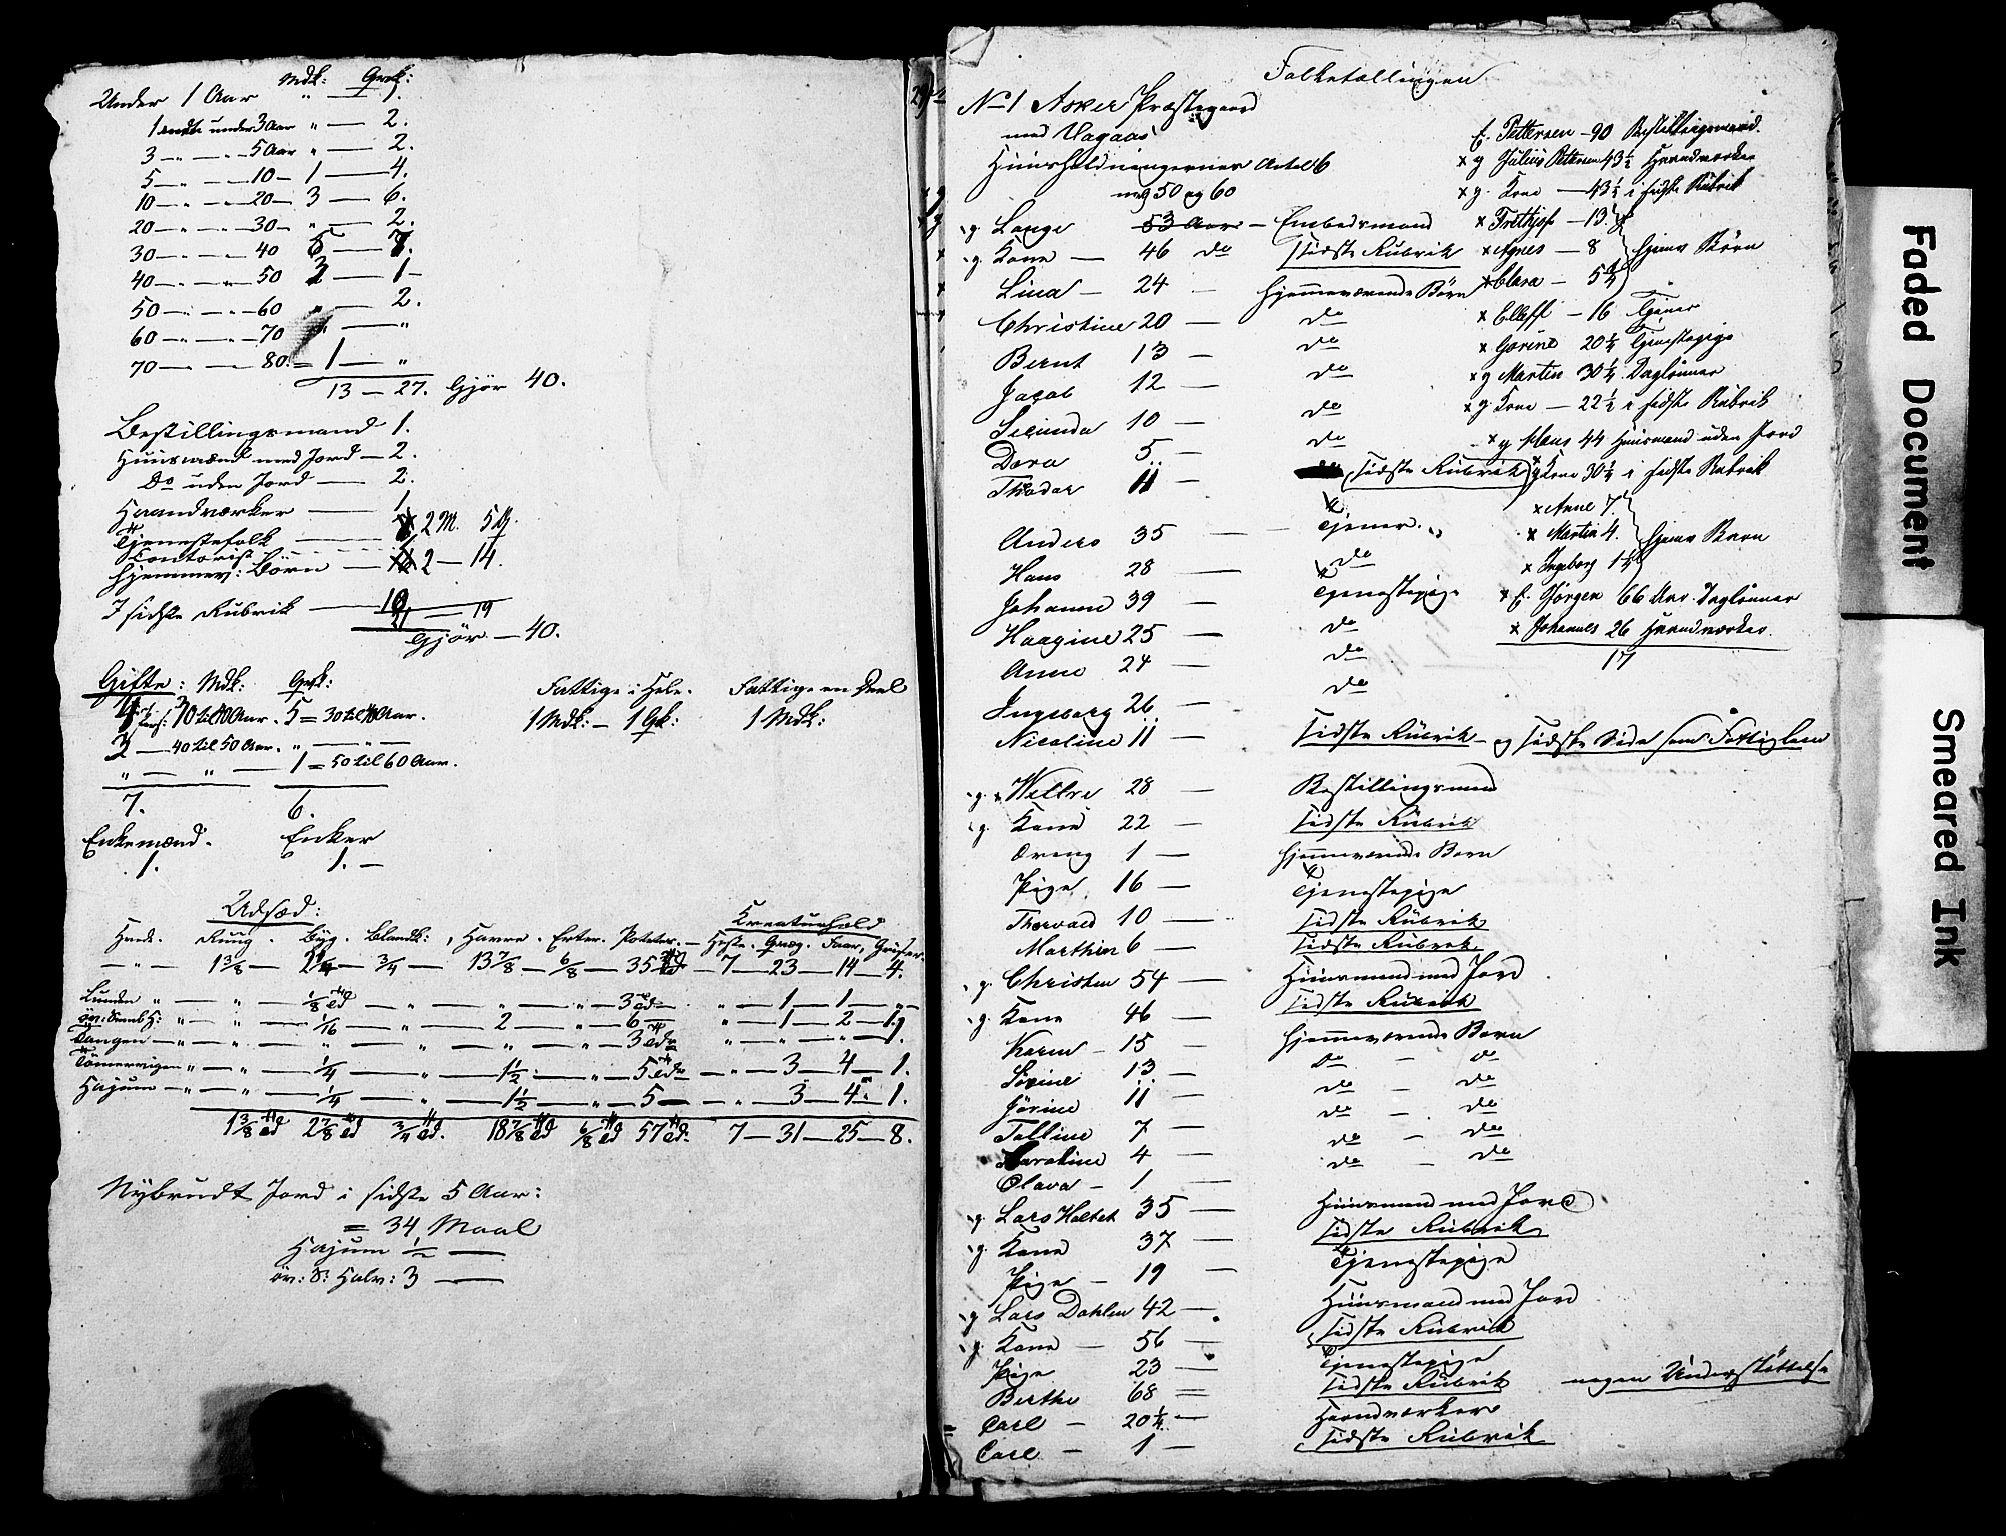 Mdk: Qvk:
Under 1 Aar " — 1.
1 indt: under 3 Aar " — 2.
3 — " — " — 5 Aar " — 2.
5 — " — " — 10 — 1 — 4.
10 — " — " — 20 — 3 — 6.
20 — " — " — 30 — " — 2.
30 — " — " — 40 5 — 7.
40 — " — " — 50 3 — 1 —
50 — " — " — 60 " — 2.
60 — " — " — 70 " — "
70 — " — " — 80. = 1 — "
13 — 27. Gjør 40.
Bestillingsmænd 1.
Huusmænd med Jord — 2.
Do uden Jord — 2.
Haandværker — 1
Tjenestefolk — 2 M. 5 Q.
Contorist
Hjemmev: Børn — 2 — 14.
I sidste Rubrik — 19
Gjør — 40.
Gifte: Mdk: Qvk:
30 til 40 Aar. 5 = 30 til 40 Aar.
3 — 40 til 50 Aar. " — " —
" — " — 1 = 50 til 60 Aar.
7. 6.
Enkemænd. Enker
1. 1. —
Fattige i Hele. Fattige en Deel
1 Mdk: — 1 Qk: 1 Mdk:
Udsæd: Kreaturhold
Hvede. Rug. Byg. Blandk:, Havre. Erter. Poteter. — Heste. Qvæg. Faar, Griser.
— " — 1 3/8 — 2 1/4 — 3/4 — 13 7/8 — 6/8 — 35 Td — 7 — 23 — 14 — 4.
Lunden " — " — 1/8 Td — " — " — " — 3 Td — " — 1 — 1 — "
" — " — 1/16 — " — 2 — " — 6 — " — 1 — 2 — 1.
Tangen — " — " — " — " — " — " — 3 Tdr — " — " — " — 1.
Tömmervigen " — " — 1/4 — " — 1 1/2 — " — 5 Tdr — " — 3 — 4 — 1.
Hajum — " — " — 1/4 — " — 1 1/2 — " — 5 — " — 3 — 4 — 1.
1 3/8 Td 2 7/8 Td 3/4 Td. 18 7/8 Td 6/8 Td 57 Td. 7 — 31 — 25 — 8.
Nybrudt Jord i sidste 5 Aar:
= 34 Maal
Hajum 1/2 —
öv: S: Halv: 3 —
Folketællingen
No 1 Asker Præstegaard
med Hagaas
Huusholdningernes Antal 6
mg 50 og 60
g Lange 53 Aar — Embedsmand
g. Kone — 46 do sidste Rubrik
Lina — 24 — Hjemmeværende Børn
Christine 20 — do
Bernt 13 — do
Jacob 12 — do
Secunda 10 — do
Dora 5 — do
Thodor 11 — sidste Rubrik
Anders 35 — Tjener.
Hans 28 — do
Johanne 39 — Tjenestepige
Haagine 25 — do
Anne 24 — do
Ingeborg 26 — do
Nicoline 11 — sidste Rubrik — og sidste Side som Fattiglem
g. Weltre 28 — Bestillingsmand
g. Kone 22 — sidste Rubrik
Dreng 1 — Hjemmeværende Børn
Pige 16 — Tjenestepige
Thorvald 10 — sidste Rubrik
Marthin 6 — sidste Rubrik
g. Christen 54 — Huusmand med Jord
g. Kone 46 — sidste Rubrik
Karen — 15 — Hjemmeværende Børn
Sørine 13 — do — do
Jørine 11 — do — do
Talline 7 — do — do
Karoline 4 — do — do
Olava — 1 — do — do
g. Lars Haltet 35 — Huusmand med Jord
g. Kone 37 — sidste Rubrik
Pige — 19 — Tjenestepige
g Lars Dahlen 42 — Huusmand med Jord
g. Kone — 56 — sidste Rubrik
Pige 23 — Tjenestepige
Berthe 68 = sidste Rubrik nogen Understøttelse
Carl — 20 1/4 — Haandværker
Carl — 1 — sidste Rubrik
E. Pettersen — 90 Bestillingsmand.
x g Julius Pettersen 43 1/2 Haandværker
x g. Kone — 43 1/2 i sidste Rubrik
x Frethjof — 13.
x Agnes — 8 hjemv Børn
x Clara — 5 1/4
x Elleff — 16 Tjener
x Gorine 20 1/4 Tjenestepige
x g Martin 30 1/4. Daglönner
x g Kone — 22 1/2 i sidste Rubrik
x g Claus 44 Huusmand uden Jord
x g Kone 30 1/4 i sidste Rubrik
x Anne 7.
x Martin 4. hjemv Børn
x Ingeborg 1 1/4
x E. Jørgen 66 Aar. Daglönner
x Johannes 26 Haandværker.
17
Faded Document
Smeared Ink